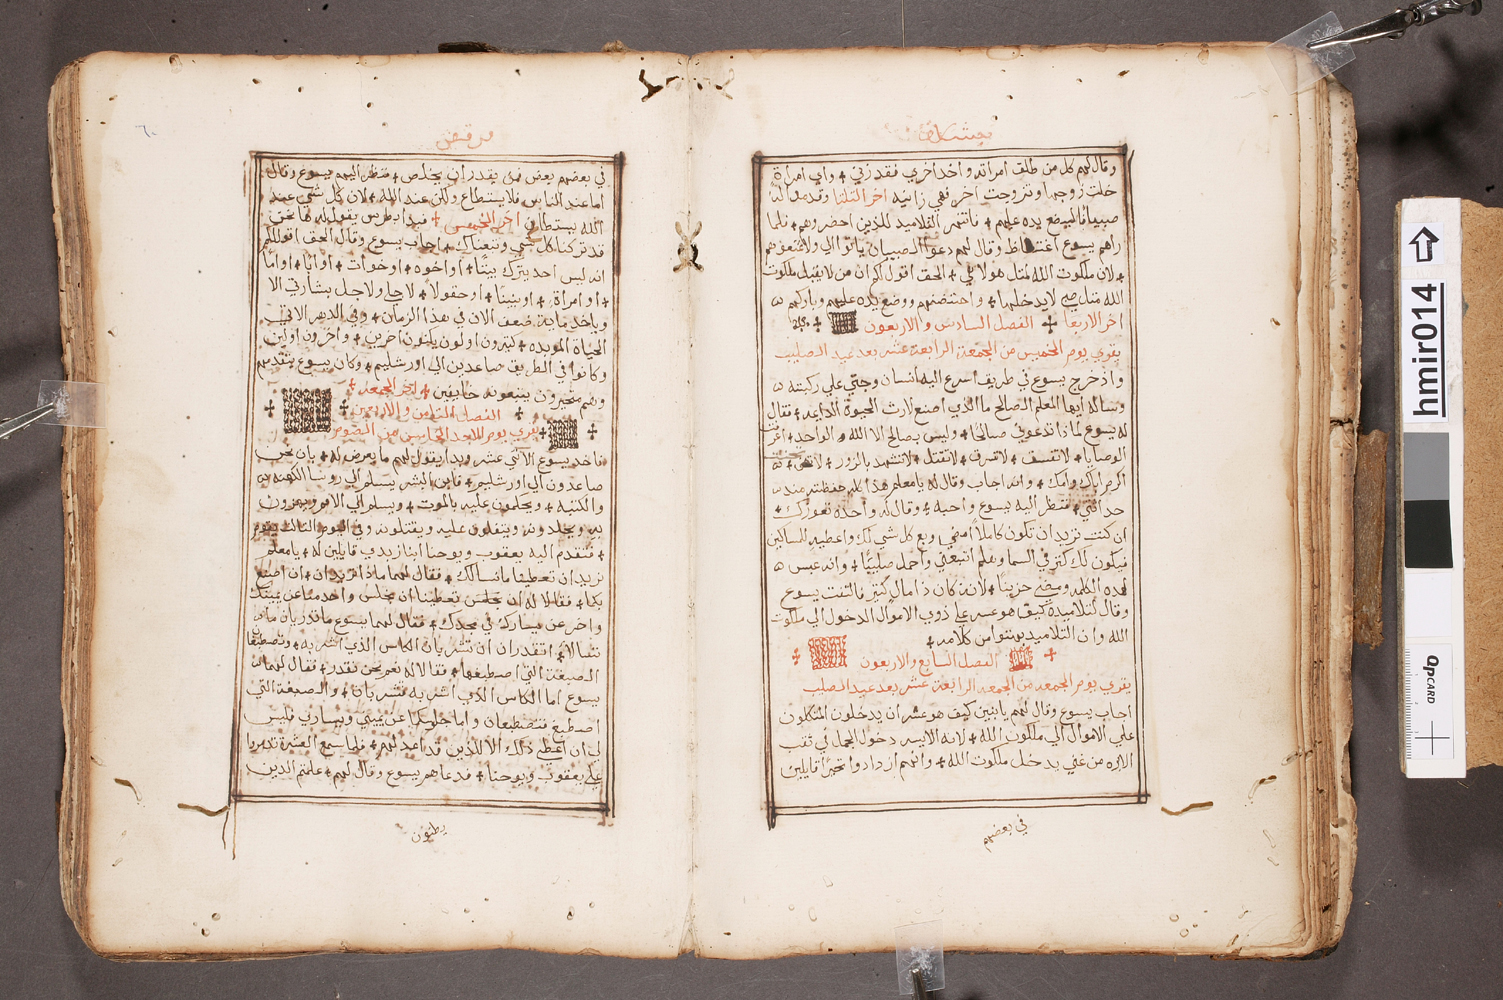 بشكل
وقال لهم كل من طلق امراته واخد اخري فقد زني + واي امراة
خلت زوجها وتزوجت اخر فهي زانيه اخر التلتا وقدموا له
صبيانا ليضع يده عليهم + فانتهر التلاميد للذين احضروهم + فلما
راهم يسوع اغتاظ وقال لهم دعوا الصبيان ياتوا الي ولا تمنعوهم
+ لان ملكوت الله لمتل هولا هي + الحق اقول لكم ان من لا يقبل ملكوت
الله متل صبي لا يدخلها + واحتضنهم ووضع يده عليهم وباركهم
اخر الاربعا + الفصل السادس والاربعون +
يقري يوم الخميس من الجمعة الرابعة عشر بعد عيد الصليب
واد خرج يسوع في طريق اسرع اليه انسان وجتي علي ركبتيه
وساله ايها المعلم الصالح ما الذي اصنع لارث الحيوة الدايمه + فقال
له يسوع لمادا تدعوني صالحًا + وليس بصالح الا الله الواحد + اعرف
الوصايا + لا تفسق + لا تسرق + لا تقتل + لا تشهد بالزور +
اكرم اباك وامك + وانه اجاب وقال له يا معلم هدا كله حفظته مند
حداتتي + فنظر اليه يسوع واحبه + وقال له واحده تعوزك +
ان كنت تريد ان تكون كاملًا امضي وبع كل شي لك واعطيه للمساكين
فيكون لك كنز في السما وهلم اتبعني واحمل صليبيًا + وانه عبس
لهده الكلمه ومضي حزينًا + لانه كان دا مال كتير فالتفت يسوع
وقال لتلاميده كيف هو عسر علي دوي الاموال الدخول الي ملكوت
الله وان التلاميد بهتوا من كلامه +
+ الفصل السابع والاربعون +
يقري يوم الجمعه من الجمعه الرابعة عشر بعد عيد الصليب
اجاب يسوع وقال لهم يا بنين كيف هو عسر ان يدخلون المتكلون
علي الاموال الي ملكوت الله + لانه الايسر دخول الجمل في تقب
الابره من غني يدخل ملكوت الله + وانهم ازدادوا تحيرًا قايلين
في بعضهم
مرقس
٦٠
في بعضهم بعض فمن يقدر ان يخلص + فنظر اليهم يسوع وقال
اما عند الناس فلا يستطاع ولكن عند الله + لان كل شي عند
الله يستطاع اخر الخميس + فبدا بطرس يقول له ها نحن
قد تركنا كل شي وتبعناك + اجاب يسوع وقال الحق اقول لكم
انه ليس احد يترك بيتًا + او اخوه + او خوات + او ابًا + او امًا
+ او امراة + او بنينًا + او حقولًا + لاجلي ولاجل بشارتي الا
وياخد ماية ضعف الان في هدا الزمان + وفي الدهر الاتي
الحياة الموبده + كتيرون اولون يكونون اخرين + واخرون اولين
وكانوا في الطريق صاعدين الي اورشليم + وكان يسوع يتقدمهم
وهم متحيرون يتبعونه خايفين + اخر الجمعه +
+ الفصل التامن والاربعين +
+ يقري يوم الاحد الخامس من الصوم +
فاخد يسوع الاتني عشر وبدا يقول لهم ما يعرض له + بان نحن
صاعدون الي اورشليم + فابن البشر يسلم الي روسا الكهنه
والكتبه + ويحكمون عليه بالموت + ويسلم الي الامم ويهزون
به ويجلدونه ويتفلون عليه ويقتلونه وفي اليوم التالت يقوم
+ فتقدم اليه يعقوب ويوحنا ابنا زبدي قايلين له + يا معلم
نريد ان تعطينا ما نسالك + فقال لهما مادا تريدان + ان اصنع
بكما + فقالا له ان تعطينا ان يجلس واحد منا عن يمينك
واخر عن يسارك في مجدك + فقال لهما يسوع ما تدريان ما
تسالا + اتقدران ان تشربان الكاس الذي اشربه + وتصطبغا
الصبغة التي اصطبغها + فقالا له نعم نحن نقدر + فقال لهما
يسوع اما الكاس الدي اشربه فتشربان + والصبغة التي
اصطبغ فتصطبغان واما جلوسكما عن يميني ويساري فليس
لي ان اعطي دلك الا للدين قد اعد لهم + فلما سمع العشرة تدمروا
علي يعقوب ويوحنا + فدعاهم يسوع وقال لهم + علمتم الدين
يظنون
hmir014
QpCARD